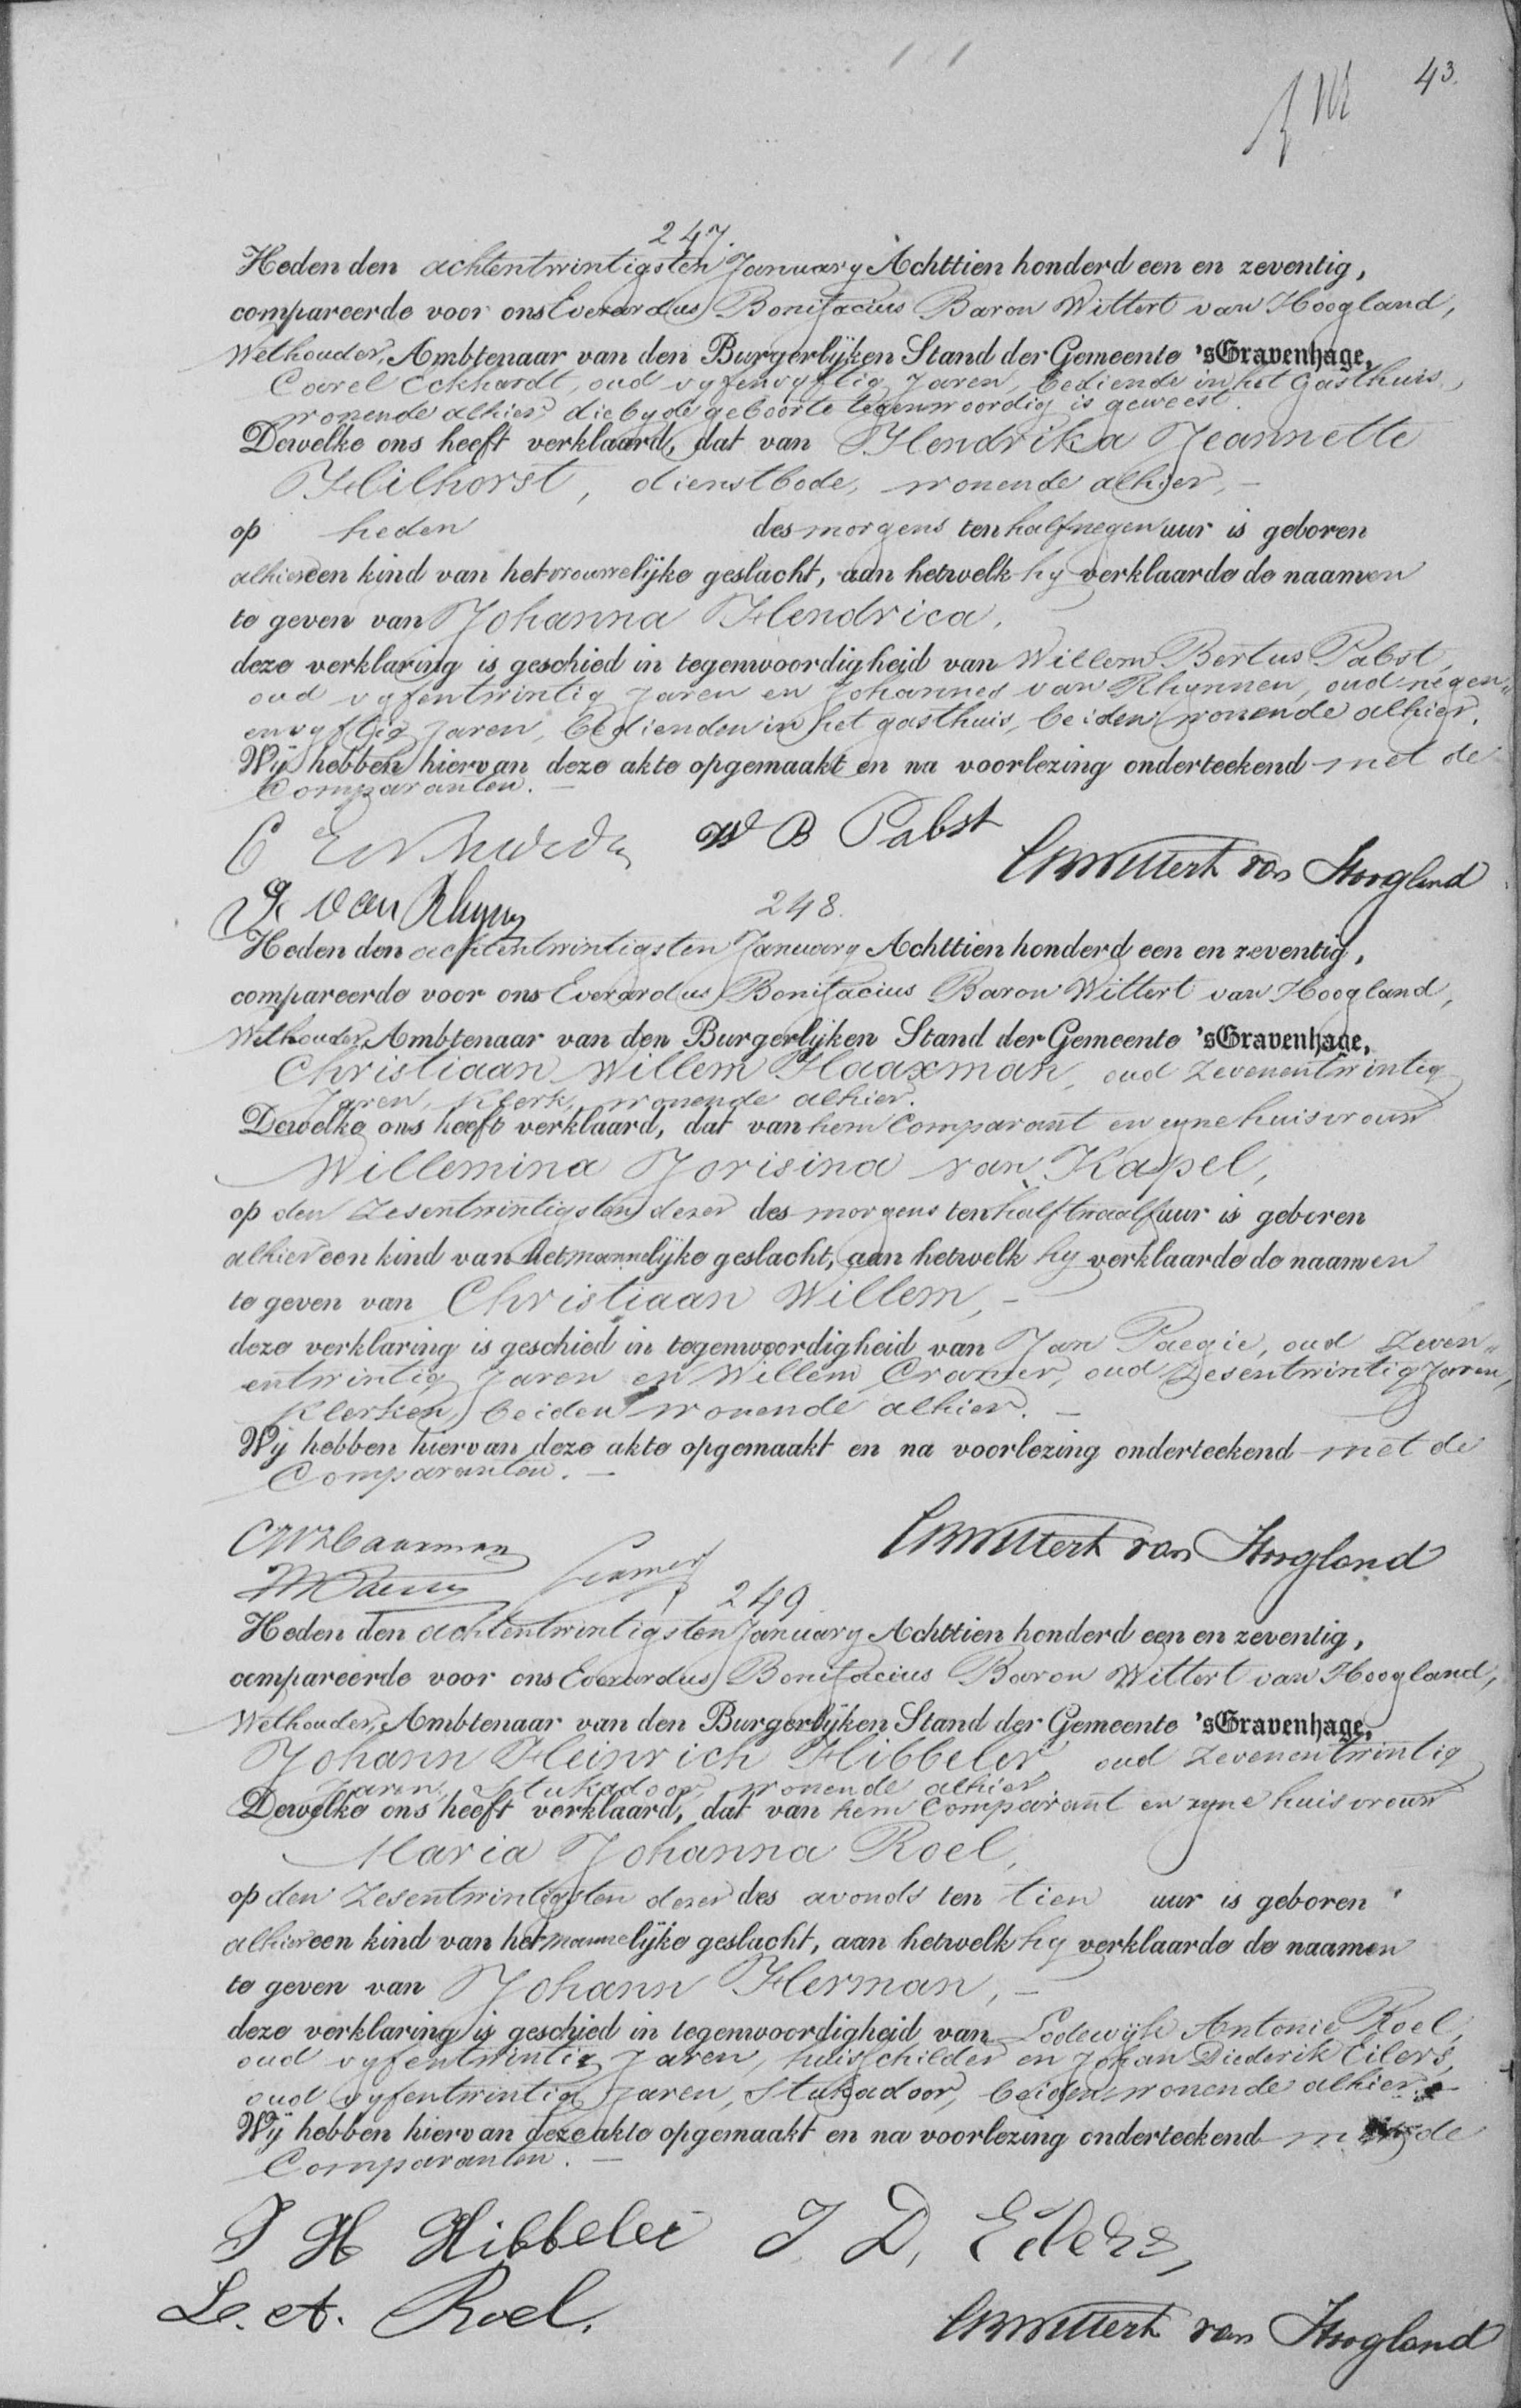 43.
247.
Heden den achtentwintigsten January Achttien honderd een en zeventig,
compareerde voor ons Everardus Bonifacius Baron Wittert van Hoogland,
Wethouder, Ambtenaar van den Burgerlijken Stand der Gemeente 'sGravenhage,
Carel Eckhardt, oud vyfenvyftig Jaren, bediende in het Gasthuis,
wonende alhier, die by de geboorte tegenwoordig is geweest.
Dewelke ons heeft verklaard, dat van Hendrika Jeannette
Hilhorst, dienstbode, wonende alhier, –
op heden des morgens ten half negen uur is geboren
alhier een kind van het vrouwelijke geslacht, aan hetwelk hy verklaarde de naamen
te geven van Johanna Hendrica, –
deze verklaring is geschied in tegenwoordigheid van Willem Bertus Pabst,
oud vyfentwintig Jaren en Johannes van Rhynnen, oud negen„
envyftig Jaren, bedienden in het gasthuis, beiden wonende alhier.
Wij hebben hiervan deze akte opgemaakt en na voorlezing onderteekend met de
Comparanten. –
W B Pabst
EBWittert van Hoogland
J. van Rhynn
248.
Heden den achtentwintigsten January Achttien honderd een en zeventig,
compareerde voor ons Everardus Bonifacius Baron Wittert van Hoogland,
Wethouder, Ambtenaar van den Burgerlijken Stand der Gemeente 'sGravenhage,
Christiaan Willem Haaxman, oud Zevenentwintig
Jaren, Klerk, wonende alhier.
Dewelke ons heeft verklaard, dat van hem Comparant en zyne huisvrouw
Willemina Jorisina van Kapel,
op den Zesentwintigsten dezer des morgens ten half twaalf uur is geboren
alhier een kind van het mannelijke geslacht, aan hetwelk hy verklaarde de naamen
te geven van Christiaan Willem, –
deze verklaring is geschied in tegenwoordigheid van Jan Paegie, oud Zeven„
entwintig Jaren en Willem Cramer, oud Zesentwintig Jaren,
Klerken, beiden wonende alhier. –
Wij hebben hiervan deze akte opgemaakt en na voorlezing onderteekend met de
Comparanten. –
CWHaaxman
EBWittert van Hoogland
Cramer
249
Heden den achtentwintigsten January Achttien honderd een en zeventig,
compareerde voor ons Everardus Bonifacius Baron Wittert van Hoogland,
Wethouder, Ambtenaar van den Burgerlijken Stand der Gemeente 'sGravenhage,
Johann Heinrich Hibbeler, oud Zevenentwintig
Jaren, Stukadoor, wonende alhier
Dewelke ons heeft verklaard, dat van hem Comparant en zyne huisvrouw
Maria Johanna Roel,
op den Zesentwintigsten dezer des avonds ten tien uur is geboren
alhier een kind van het mannelijke geslacht, aan hetwelk hy verklaarde de naamen
te geven van Johann Herman, –
deze verklaring is geschied in tegenwoordigheid van Lodewijk Antonie Roel,
oud vyfentwintig Jaren, huisschilder en Johan Diederik Eilers,
oud vyfentwintig Jaren, Stukadoor, beiden wonende alhier. –
Wij hebben hiervan deze akte opgemaakt en na voorlezing onderteekend met de
Comparanten. –
J H Hibbeler J. D. Eilers,
L. A. Roel.
EBWittert van Hoogland